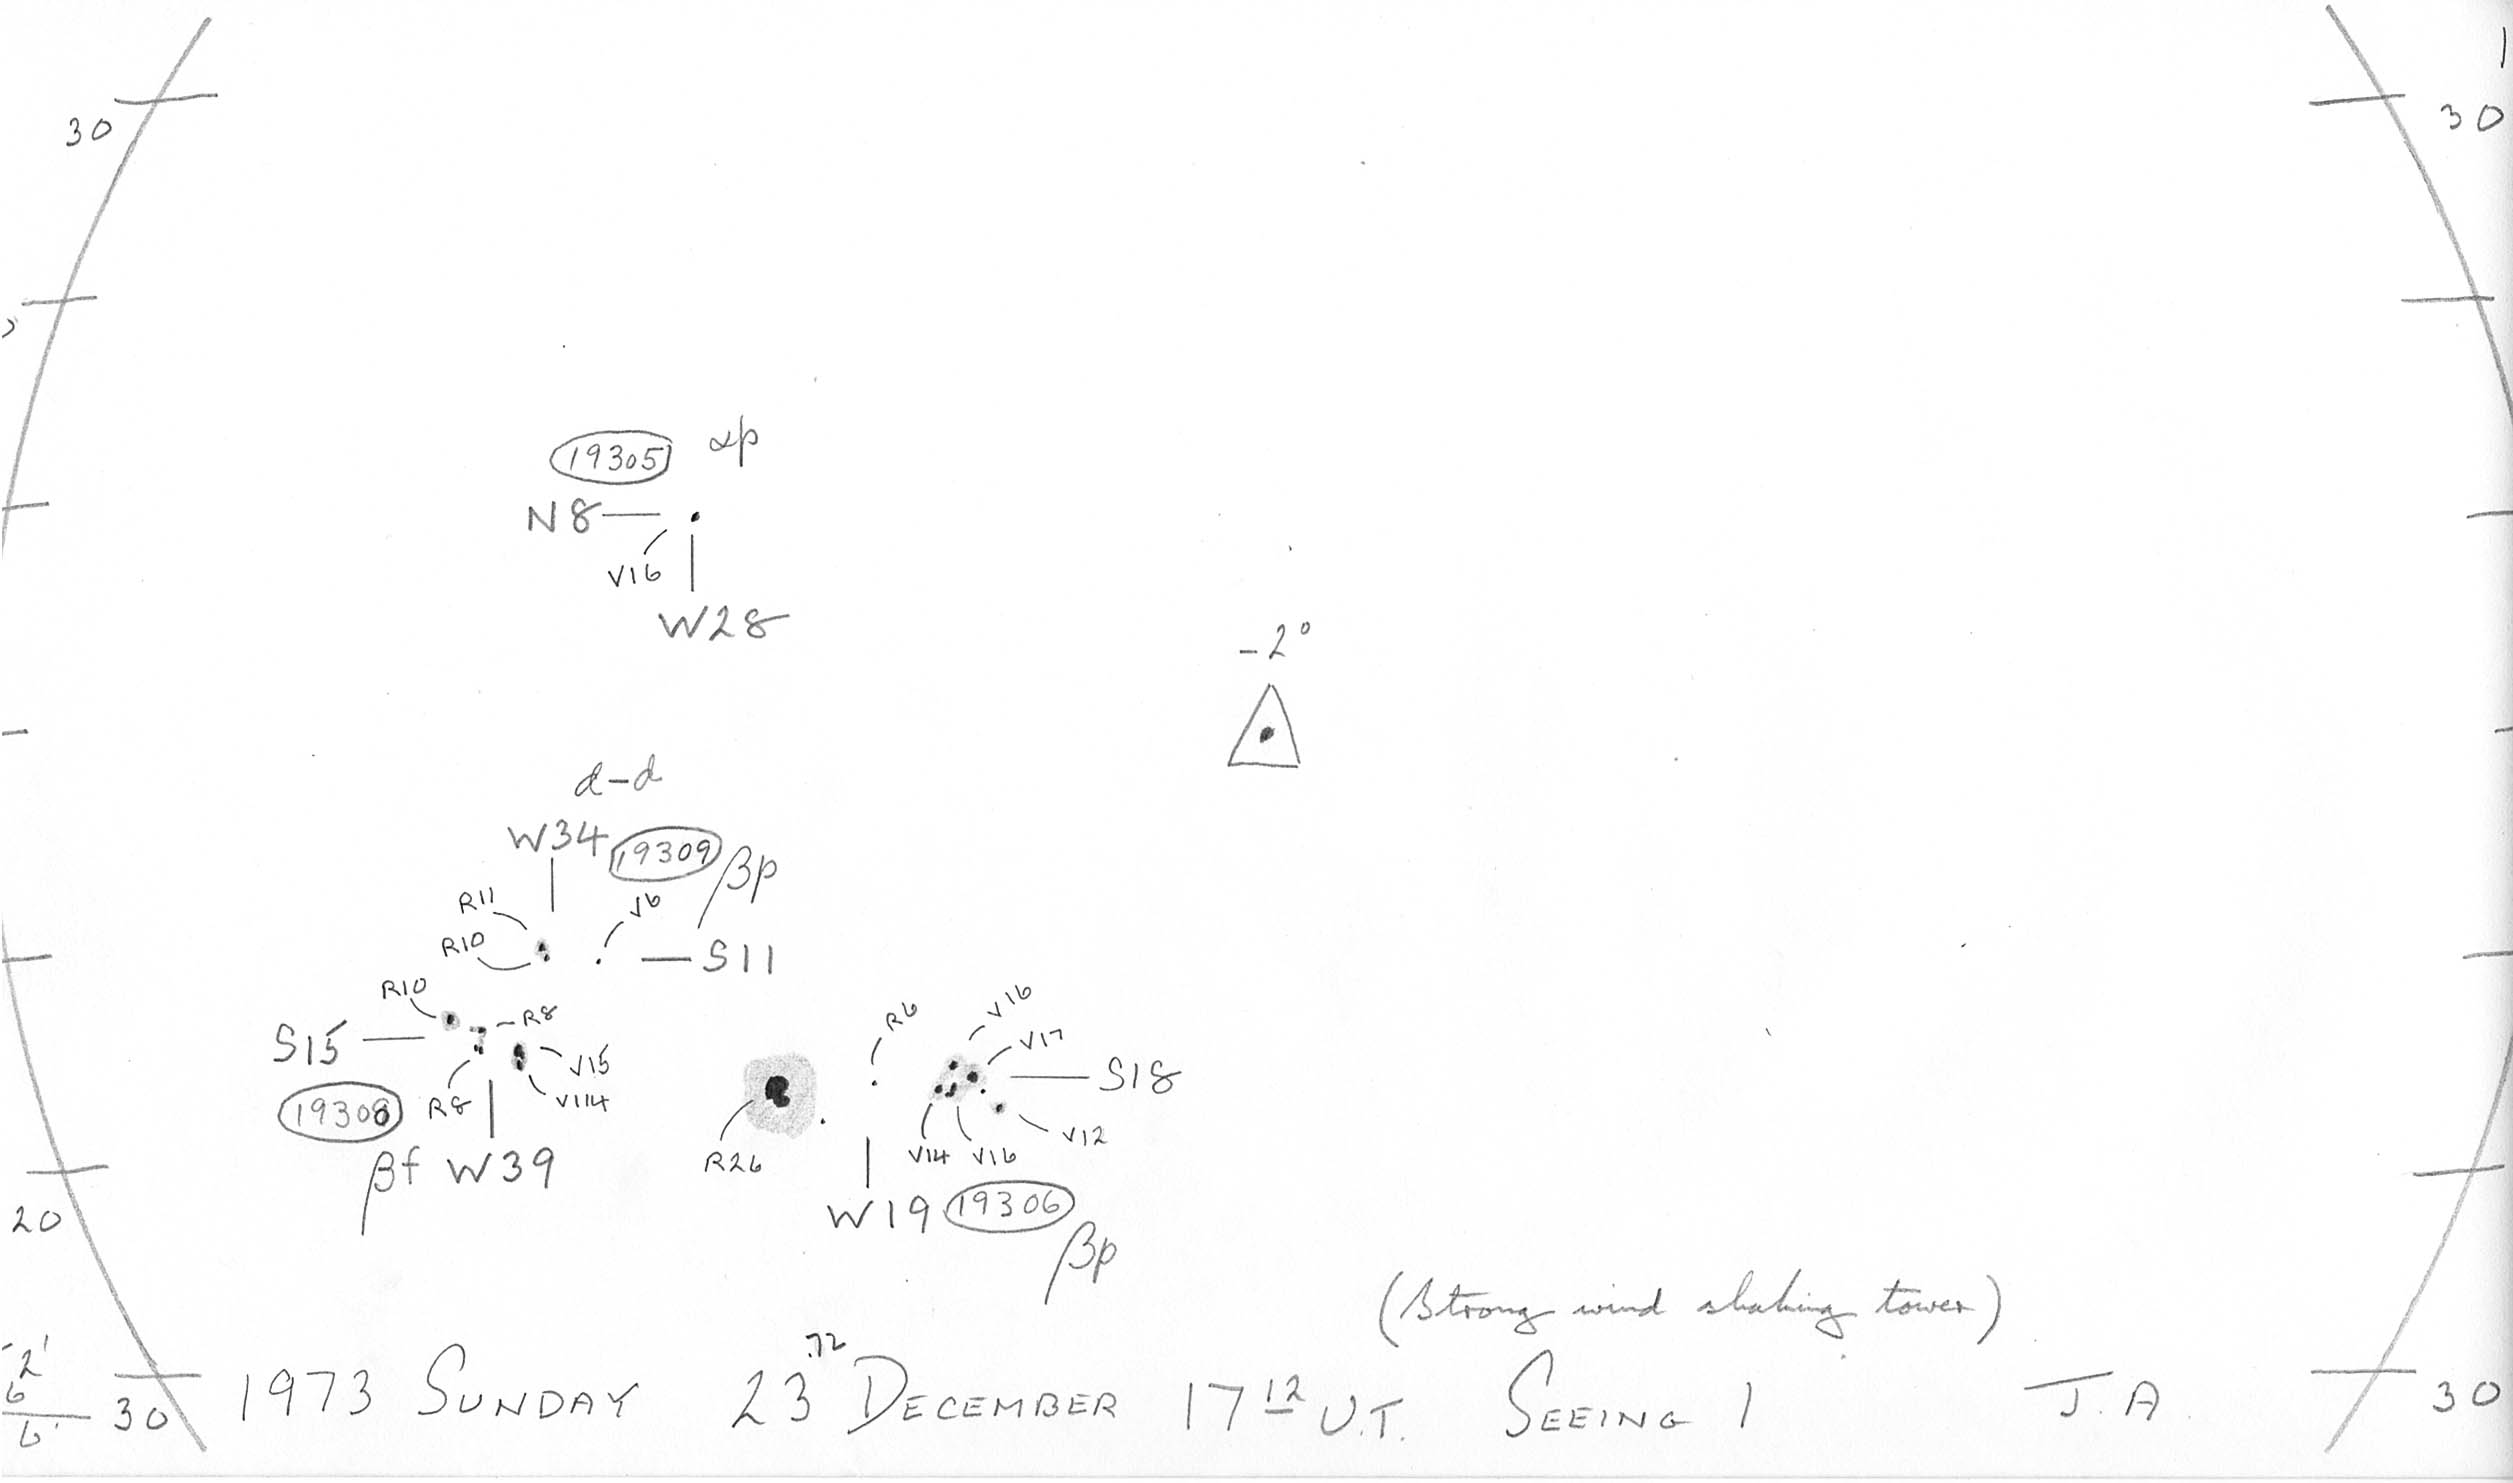 30
30
19305 αp
N8
V16
W28
-2°
d-d
W34 19309 βp
R11
V6
R10
S11
R10
R8
S15
V15
19308 R8
V114
βf W39
R6
V16
V17
S18
R26
V14 V16
V12
W19 19306
βp
20
(Strong wind shaking tower)
30
1973 SUNDAY 23.72 DECEMBER 17 12 U.T. SEEING 1 J.A.
30